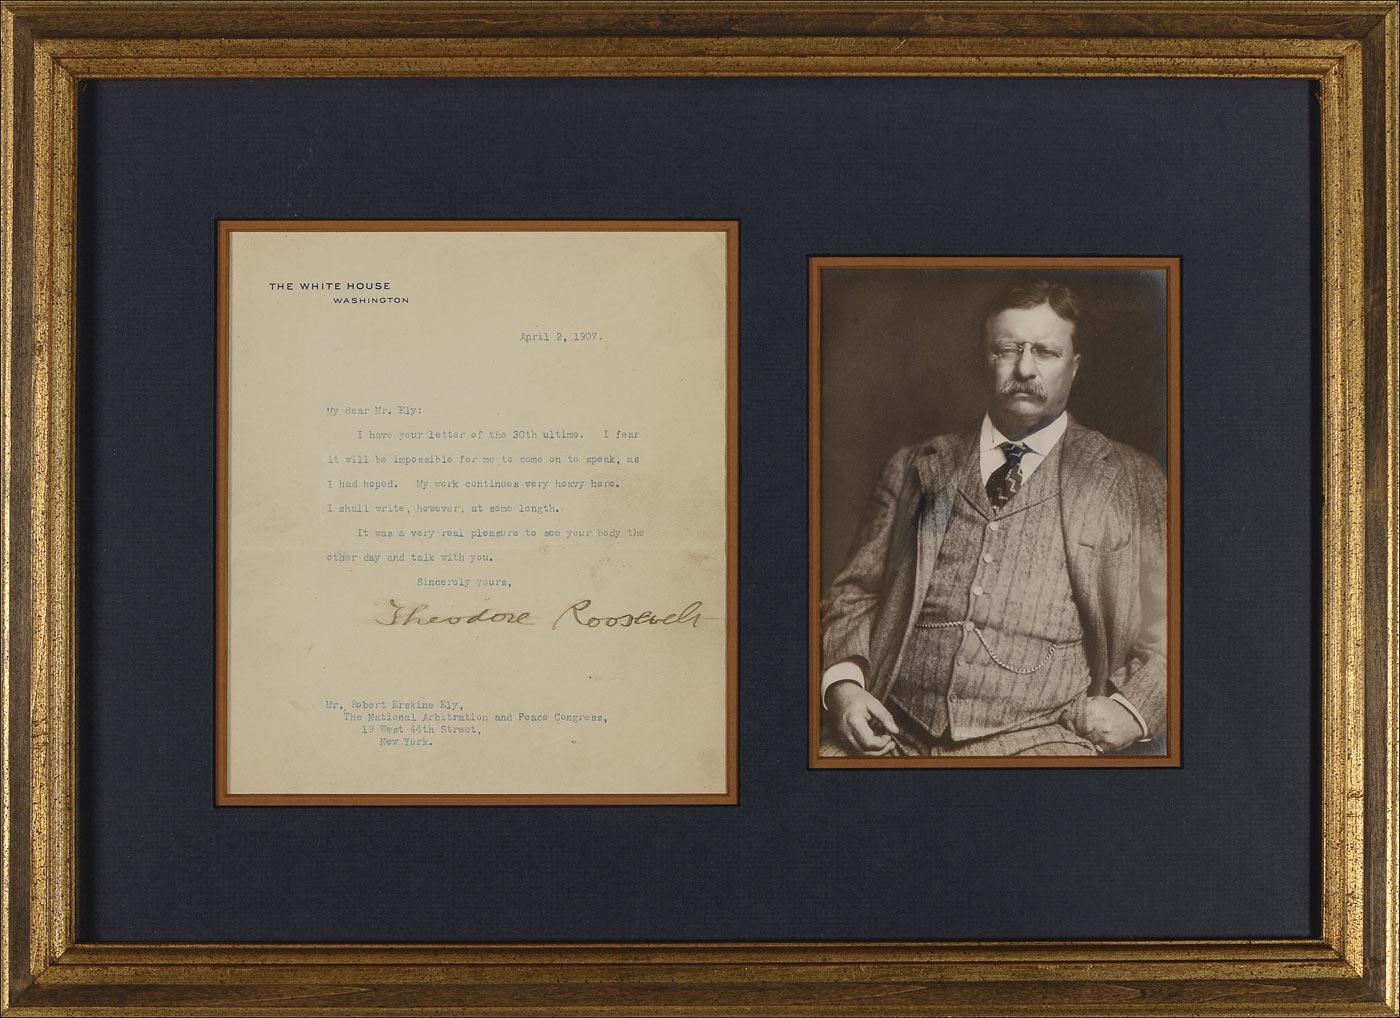 THE WHITE HOUSE
WASHINGTON
April 2, 1907.
My dear Mr. Ely:
I have your letter of the 30th ultimo. I fear
it will be impossible for me to come on to speak, as
I had hoped. My work continues very heavy here.
I shall write, however, at some length.
It was a very real pleasure to see your body the
other day and talk with you.
Sincerely yours,
Theodore Roosevelt
Mr. Robert Erskine Ely,
The National Arbitration and Peace Congress,
19 West 44th Street,
New York.